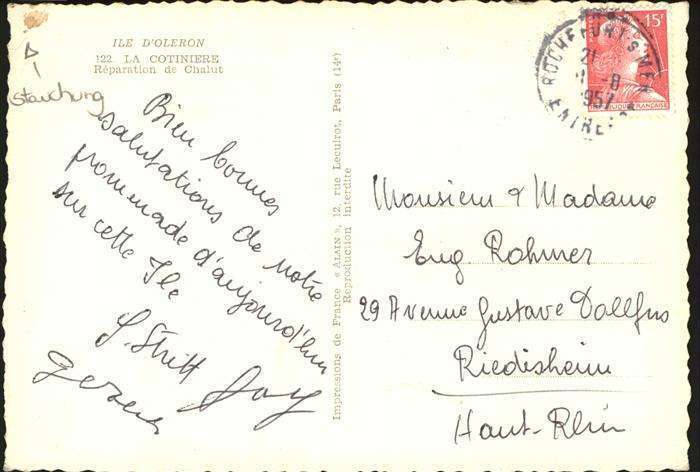 ILE D'OLERON
122. LA COTINIERE
Réparation de Chalut
Stauchung
Bien bonnes
salutations de notre
promenade d'aujourd'hui
sur cette Ile
Impressions de France « ALAIN », 12, rue Lecuirot, Paris (14e)
Reproduction Interdite
15F
ROCHEFORT S MER
21
1 -8
1957
Monsieur & Madame
Eug Rohmer
29 Avenue Gustave Dollfus
Riedisheim
Haut-Rhin